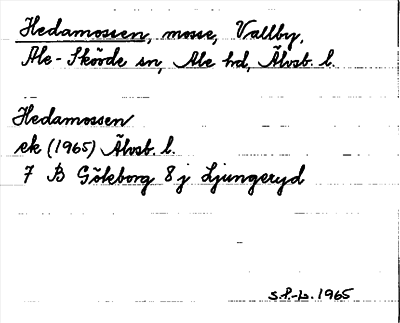 Hedamossen, mosse, Vallby,
Ale-Skövde sn, Ale hd, Älvsb. l.
Hedamossen
ek (1965) Älvsb. l.
7 B Göteborg 8 j Ljungeryd
S.P.-L. 1965